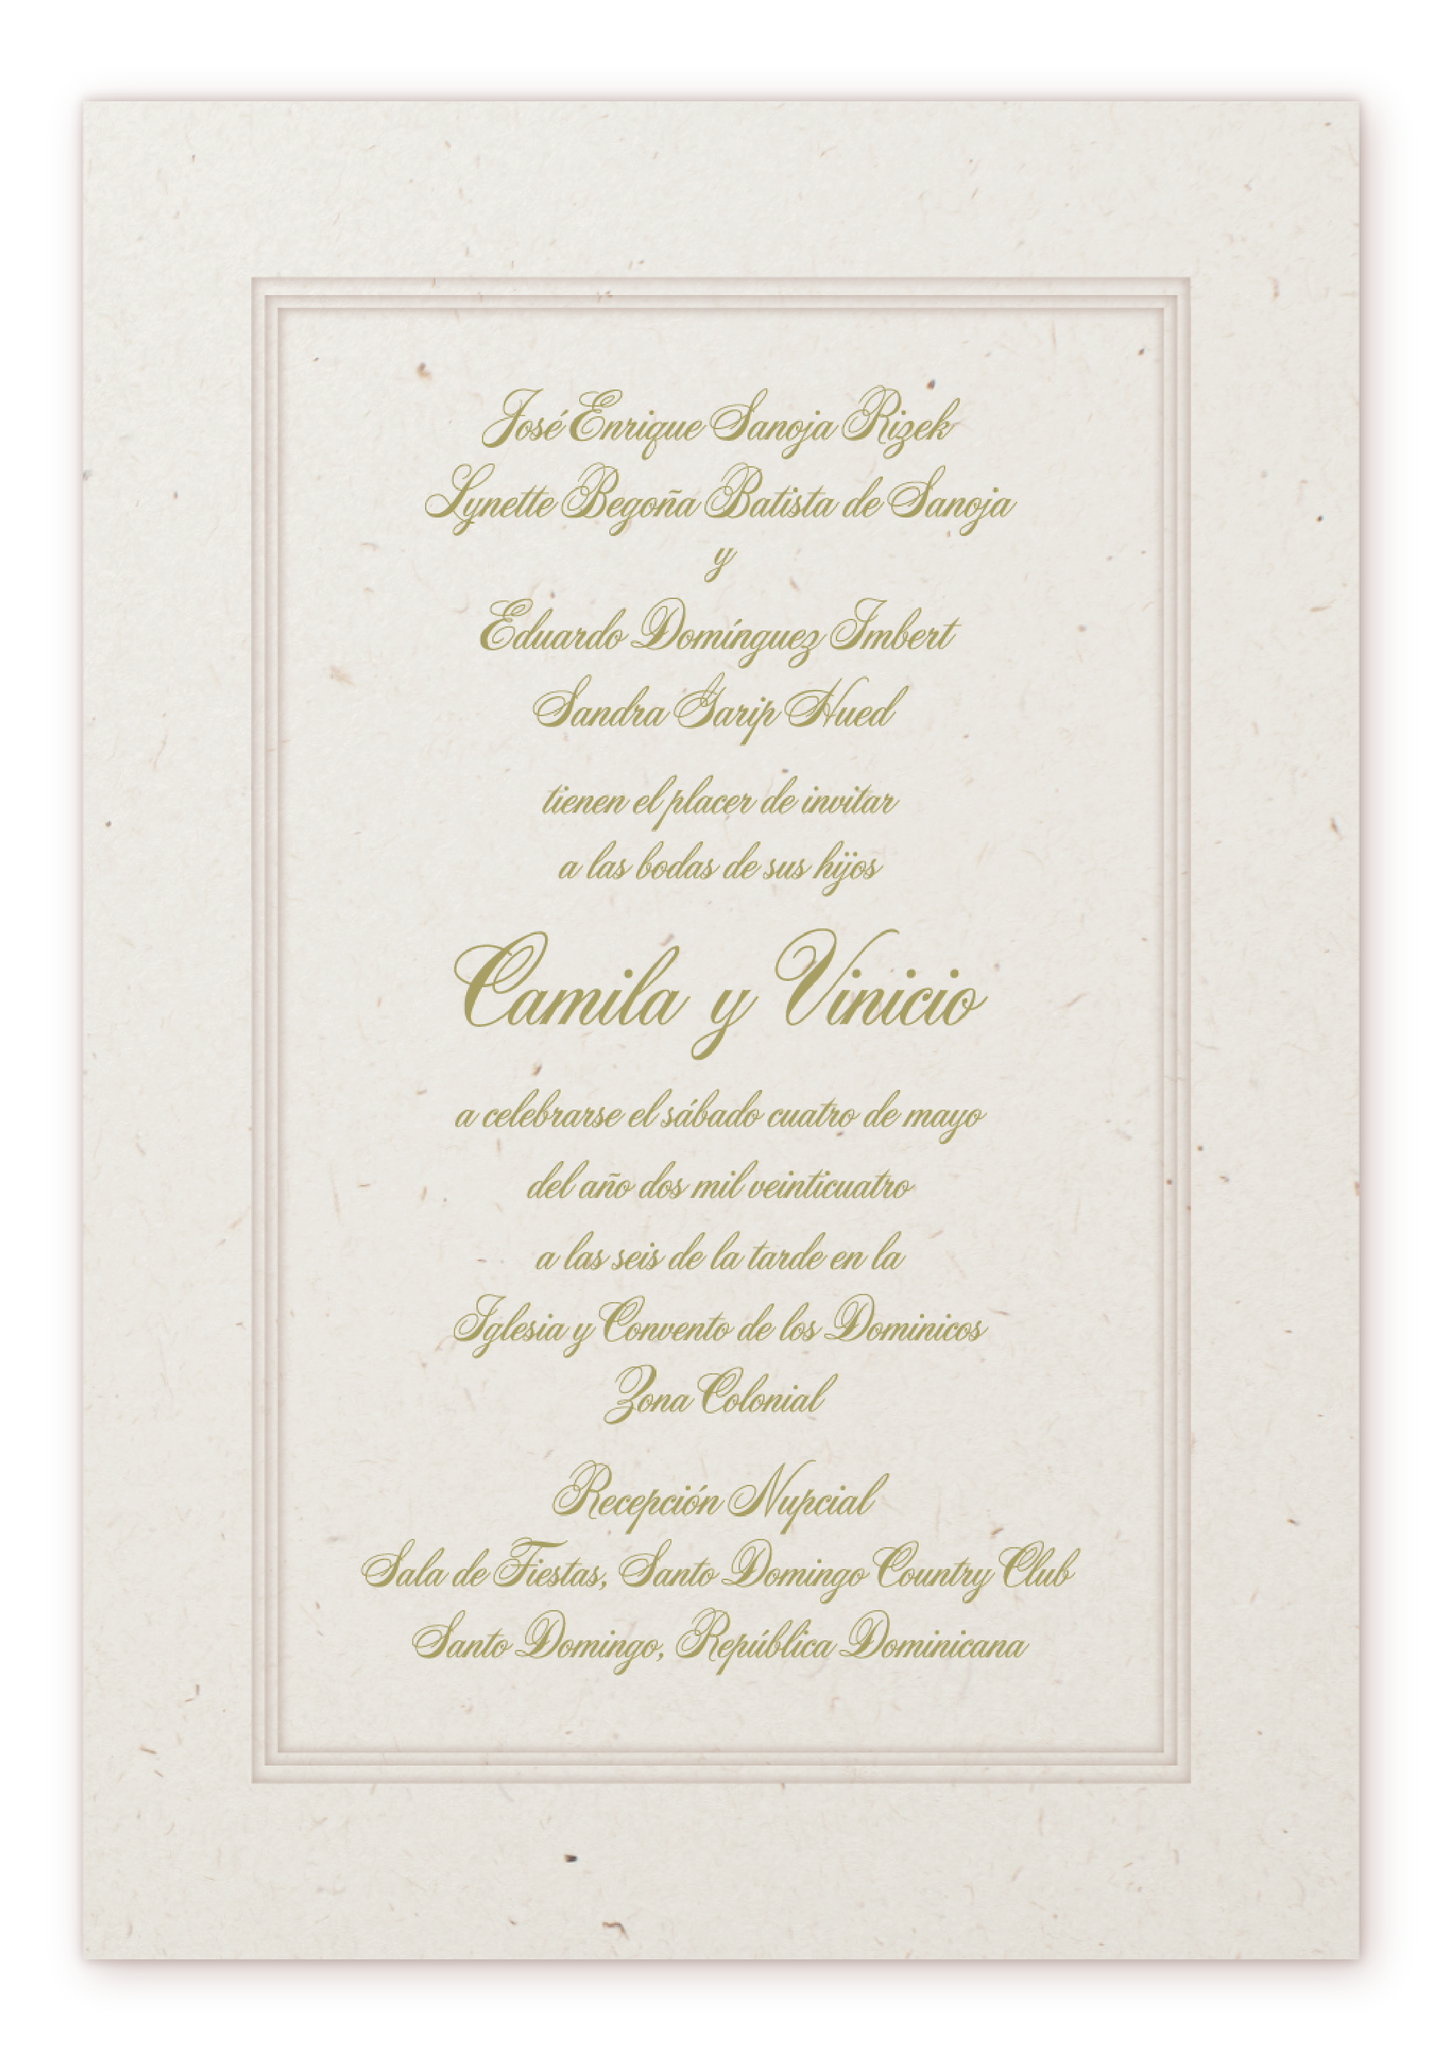 José Enrique Sanoja Rizek
Lynette Begoña Batista de Sanoja
y
Eduardo Domínguez Imbert
Sandra Garip Hued
tienen el placer de invitar
a las bodas de sus hijos
Camila y Vinicio
a celebrarse el sábado cuatro de mayo
del año dos mil veinticuatro
a las seis de la tarde en la
Iglesia y Convento de los Dominicos
Zona Colonial
Recepción Nupcial
Sala de Fiestas, Santo Domingo Country Club
Santo Domingo, República Dominicana